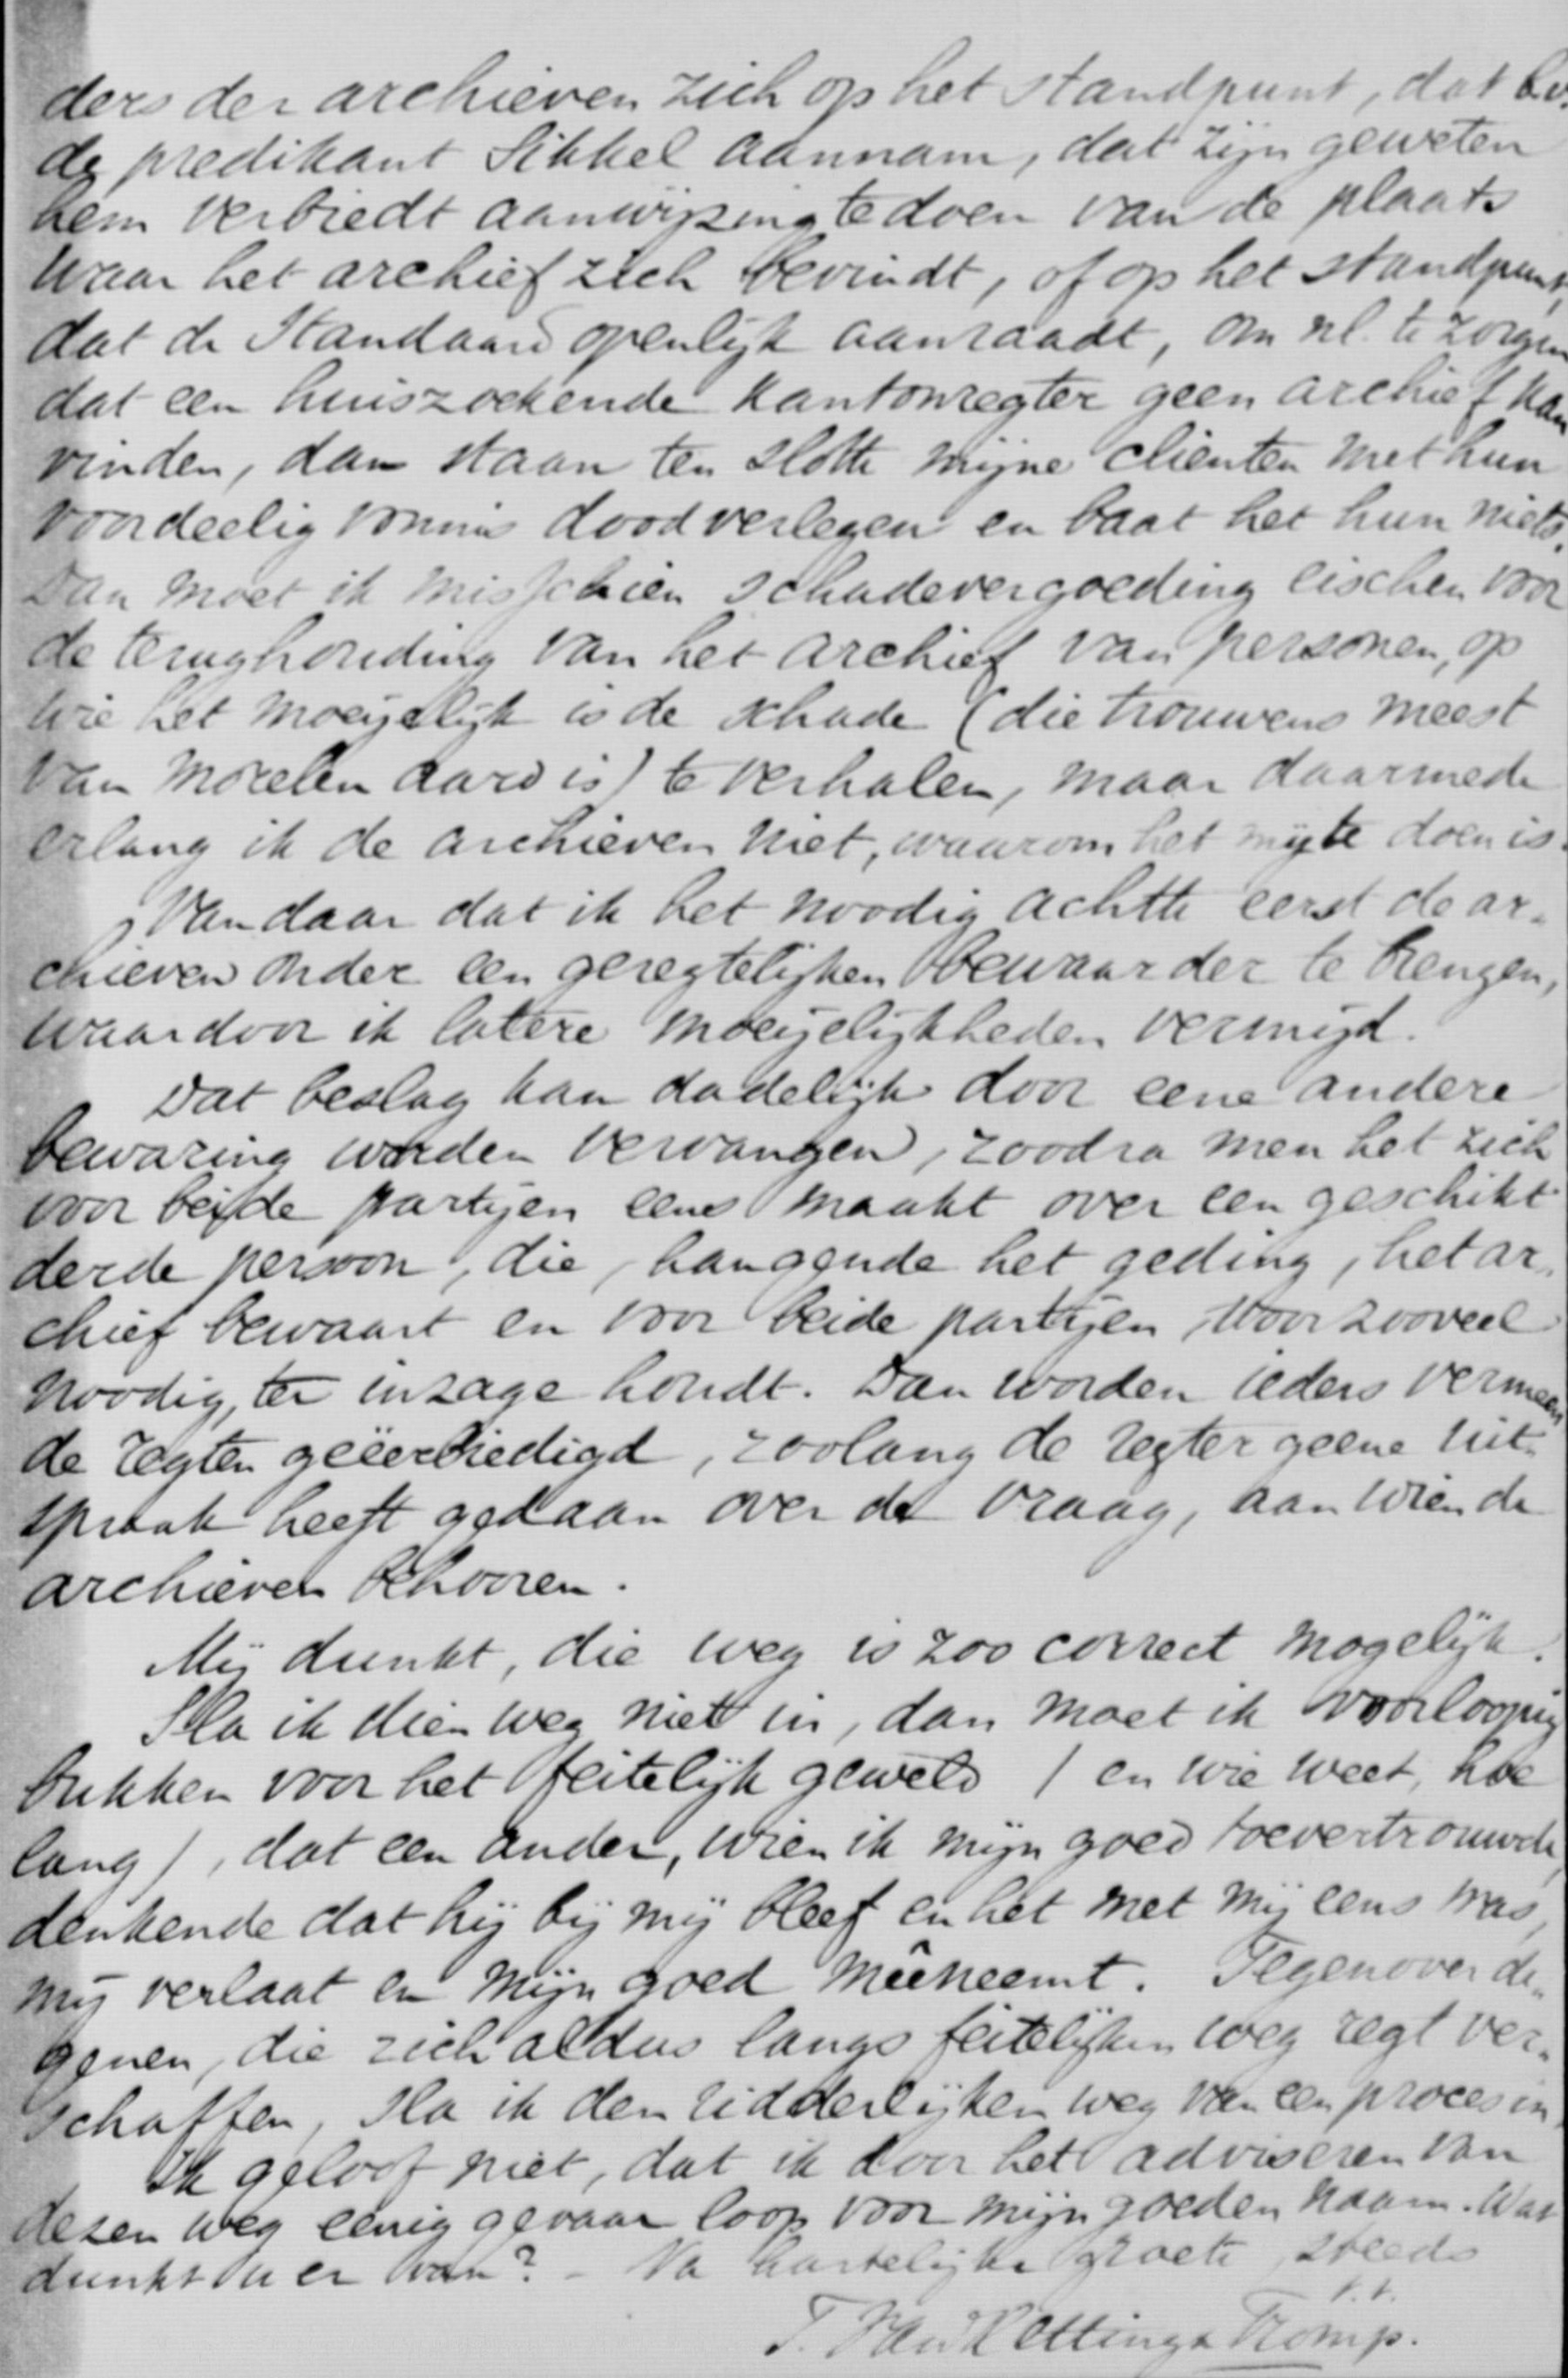 ders der archieven zich op het standpunt, dat b.v.
de predikant Sikkel aannam, dat zijn geweten
hem verbiedt aanwijzing te doen van de plaats
waar het archief zich bevindt, of op het standpunt,
dat de Standaard openlijk aanraadt, om nl. te zorgen
dat een huiszoekende kantonregter geen archief kan
vinden, dan staan ten slotte mijne clienten met hun
voordeelig vonnis doodverlegen en baat het hun niets.
Dan moet ik misschien schadevergoeding eischen voor
de terughouding van het archief van personen, op
wie het moeijelijk is de schade (die trouwens meest
van moreelen aard is) te verhalen, maar daarmede
erlang ik de archieven niet, waarom het mij te doen is.
Vandaar dat ik het noodig achtte eerst de ar-
chieven onder een geregtelijken bewaarder te brengen,
waardoor ik latere moeijelijkheden vermijd.
Dat beslag kan dadelijk door eene andere
bewaring worden vervangen, zoodra men het zich
voor beide partijen eens maakt over een geschikt
derde persoon, die, hangende het geding, het ar-
chief bewaart en voor beide partijen, voor zooveel
noodig, ter inzage houdt. Dan worden ieders vermeen
de regten geëerbiedigd, zoolang de regter geene uit-
spraak heeft gedaan over de vraag, aan wien de
archieven behooren.
Mij dunkt, die weg is zoo correct mogelijk.
Sla ik dien weg niet in, dan moet ik voorloopig
bukken voor het feitelijk geweld (en wie weet, hoe
lang), dat een ander, wien ik mijn goed toevertrouwde,
denkende dat hij bij mij bleef en het met mij eens was,
mij verlaat en mijn goed meêneemt. Tegenover de-
genen, die zich aldus langs feitelijken weg regt ver-
schaffen, sla ik den ridderlijken weg van een proces in.
Ik geloof niet, dat ik door het adviseren van
dezen weg eenig gevaar loop voor mijn goeden naam. Wat
dunkt u er van? - Na hartelijke groete, steeds
t.t.
T. van Hettinga Tromp.